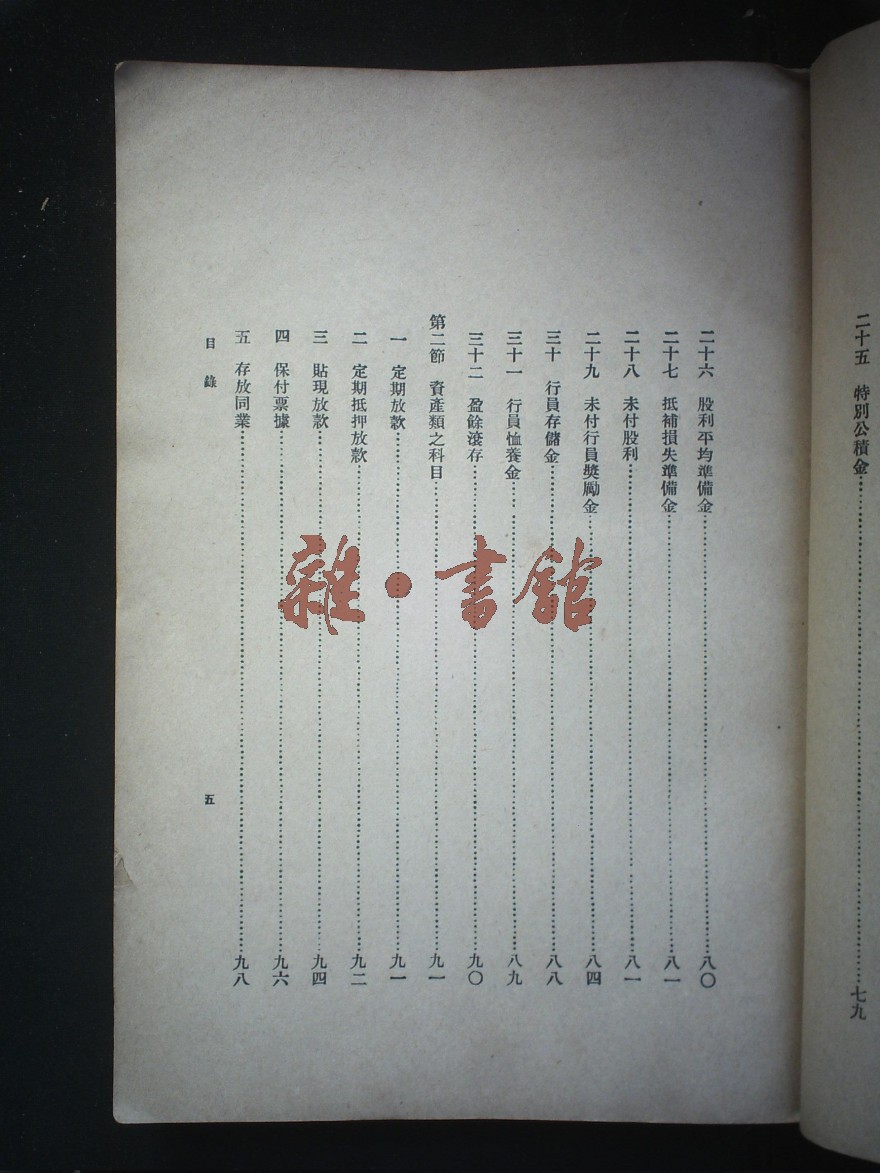 二十五 特別公積金……七九
二十六 股利平均準備金……八〇
二十七 抵補損失準備金……八一
二十八 未付股利……八一
二十九 未付行員獎勵金……八四
三十 行員存儲金……八八
三十一 行員恤養金……八九
三十二 盈餘滾存……九〇
第二節 資產類之科目……九一
一 定期放款……九一
二 定期抵押放款……九二
三 貼現放款……九四
四 保付票據……九六
五 存放同業……九八
目錄
五
雜·書館